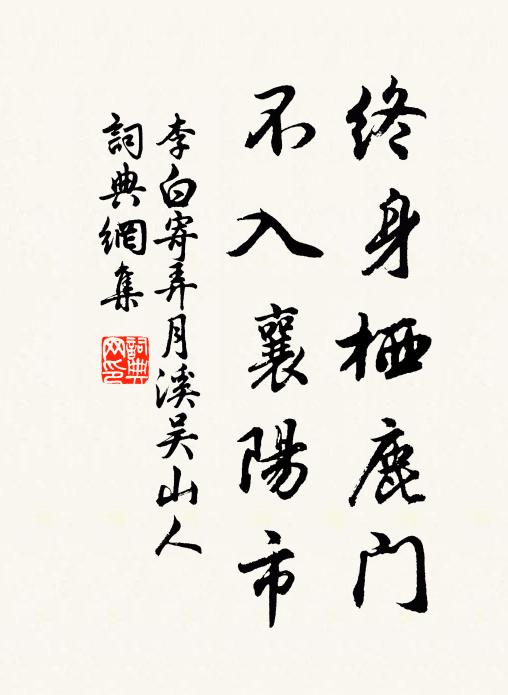 終身栖鹿门
不入襄陽市
李白寄弄月溪吴山人
詞典網集
詞典
网印